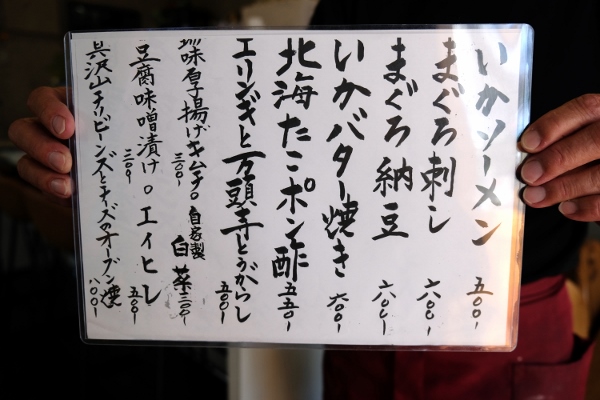 いかソーメン 五〇〇-
まぐろ刺し 六〇〇-
まぐろ納豆 六〇〇-
いかバター焼き 六〇〇-
北海たこポン酢 五五〇-
エリンギと万願寺とうがらし 五〇〇-
味厚揚げキムチ。自家製白菜 三〇〇- 三〇〇-
豆腐味噌漬け。エイヒレ 三五〇- 五〇〇-
具沢山チリビーンズとチーズのオーブン焼 八〇〇-